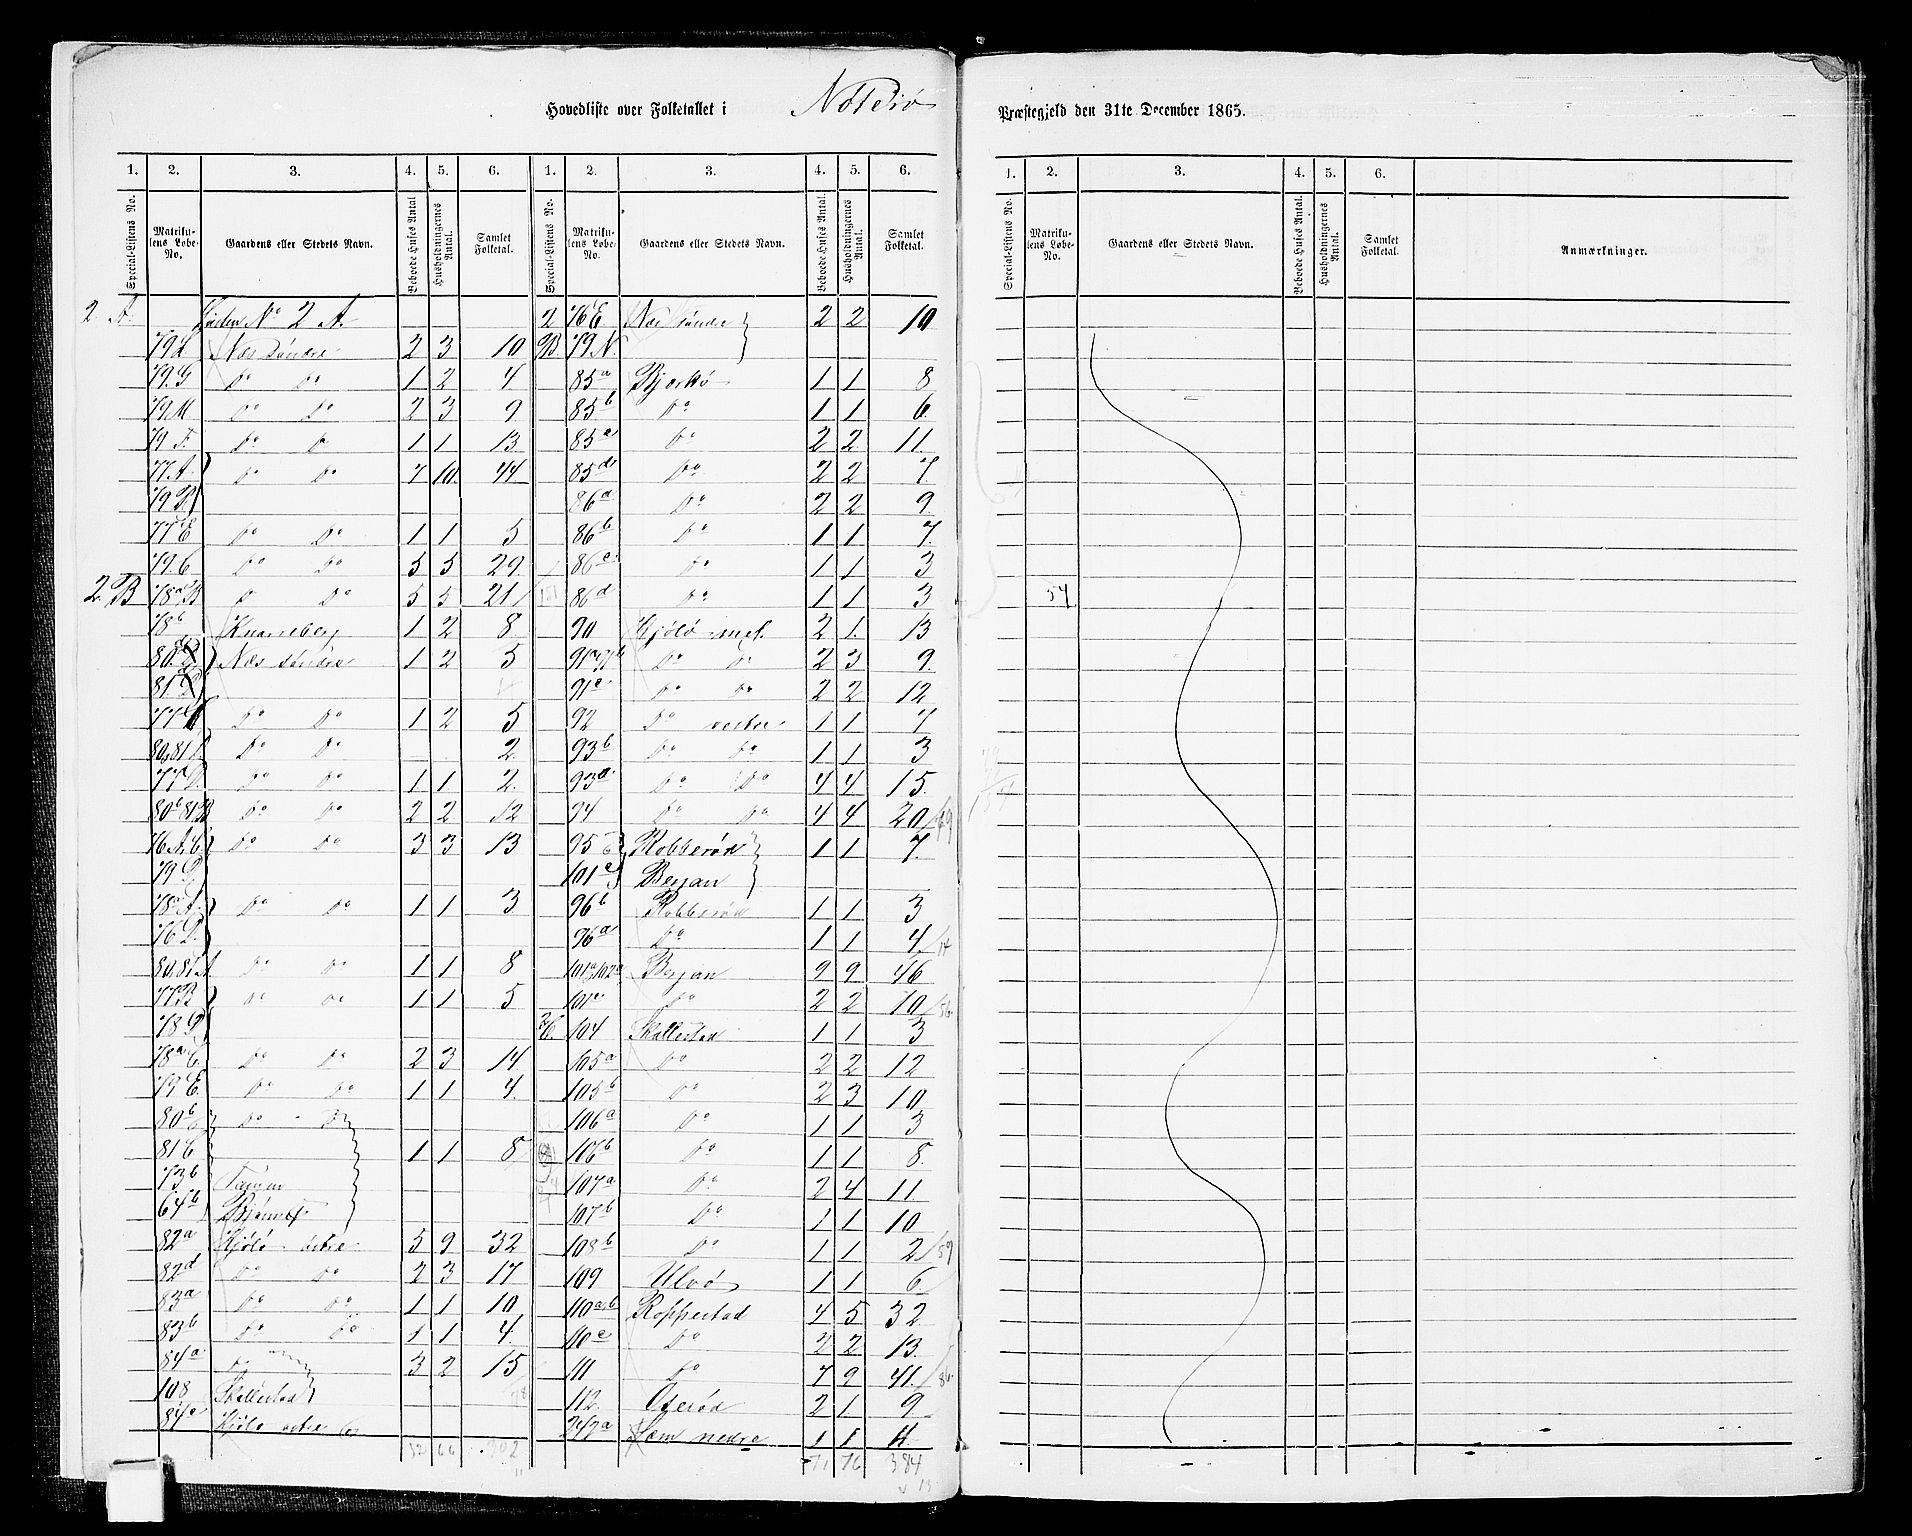 Hovedliste over Folketallet i Nöterö
Præstegjeld den 31te December 1865.
1. 2. 3. 4. 5. 6. 1. 2. 3. 4. 5. 6.
Special-Listens No. Matrikulens Løbe-No. Gaardens eller Stedets Navn. Beboede Huses Antal. Husholdningernes Antal. Samlet Folketal. Special-Listens No. Matrikulens Løbe-No. Gaardens eller Stedets Navn. Beboede Huses Antal. Husholdningernes Antal. Samlet Folketal.
2. A. Listen No 2 A.
79 L Næs söndre 2 3 10
79. G Do Do 1 2 4
79 M Do Do 2 3 9
79 F. Do D 1 1 13
77. A Do Do 7 10 44
79 B
77 E Do Do 1 1 5
79. C Do Do 5 5 29
2. B 78a B D Do 5 5 21
78b Knarreberg 1 2 8
80. Næs söndre 1 2 5
81
77 Do Do 1 2 5
80, 81 Do Do 2
77 D. Do Do 1 1 2
80b 81 B Do Do 2 2 12
76 A. C. Do Do 3 3 13
79 D
78a A. Do Do 1 1 3
76 D.
80, 81 A Do Do 1 1 8
77 B Do Do 1 1 5
78 D
78a C Do Do 2 3 14
79 E. Do Do 1 1 4
80b Do D
81 C 1 1 8
73b
64b Bjönnes
82a Kjölö östre 5 9 32
82d Do Do 2 3 17
83a Do Do 1 1 10
83b Do Do 1 1 4
84a Do 3 2 15
108 Skallestad
84c Kjölö östre
52 66 302
2 76 E Næs söndre 2 2 10
B. 79 N.
85a Bjerkö 1 1 8
85b Do 1 1 6
85c Do 2 2 11
85d Do 2 2 7
86a Do 2 2 9
86b Do 1 1 7
86c Do 1 1 3
86d Do 1 1 3
90 Kjölö mel. 2 1 13
91a 91b Do D 2 3 9
91c Do Do 2 2 12
92 Do vestre 1 1 7
93b Do Do 1 1 3
93a Do Do 4 4 15
94 Do Do 4 4 20
95 Robberöd 1 1 7
101c Berjan
96b Robberöd 1 1 3
96a Do 1 1 4
101a, 102a Berjan 9 9 46
101c Do 2 2 10
2 C. 104 Skallestad 1 1 3
105a Do 2 2 12
105b Do 2 3 10
106a Do 1 1 3
106b Do 1 1 8
107a Do 2 4 11
107b Do 1 1 10
108b Do 1 1 2
109 Ulvö 1 1 6
110a, b Roppestad 4 5 32
110c Do 2 2 13
111 Do 7 9 41
112 Oseröd 2 1 9
242a Sem nedre 1 1 4
71 76 384
1. 2. 3. 4. 5. 6.
Special-Listens No. Matrikulens Løbe-No. Gaardens eller Stedets Navn. Beboede Huses Antal. Husholdningernes Antal. Samlet Folketal. Anmærkninger.
54